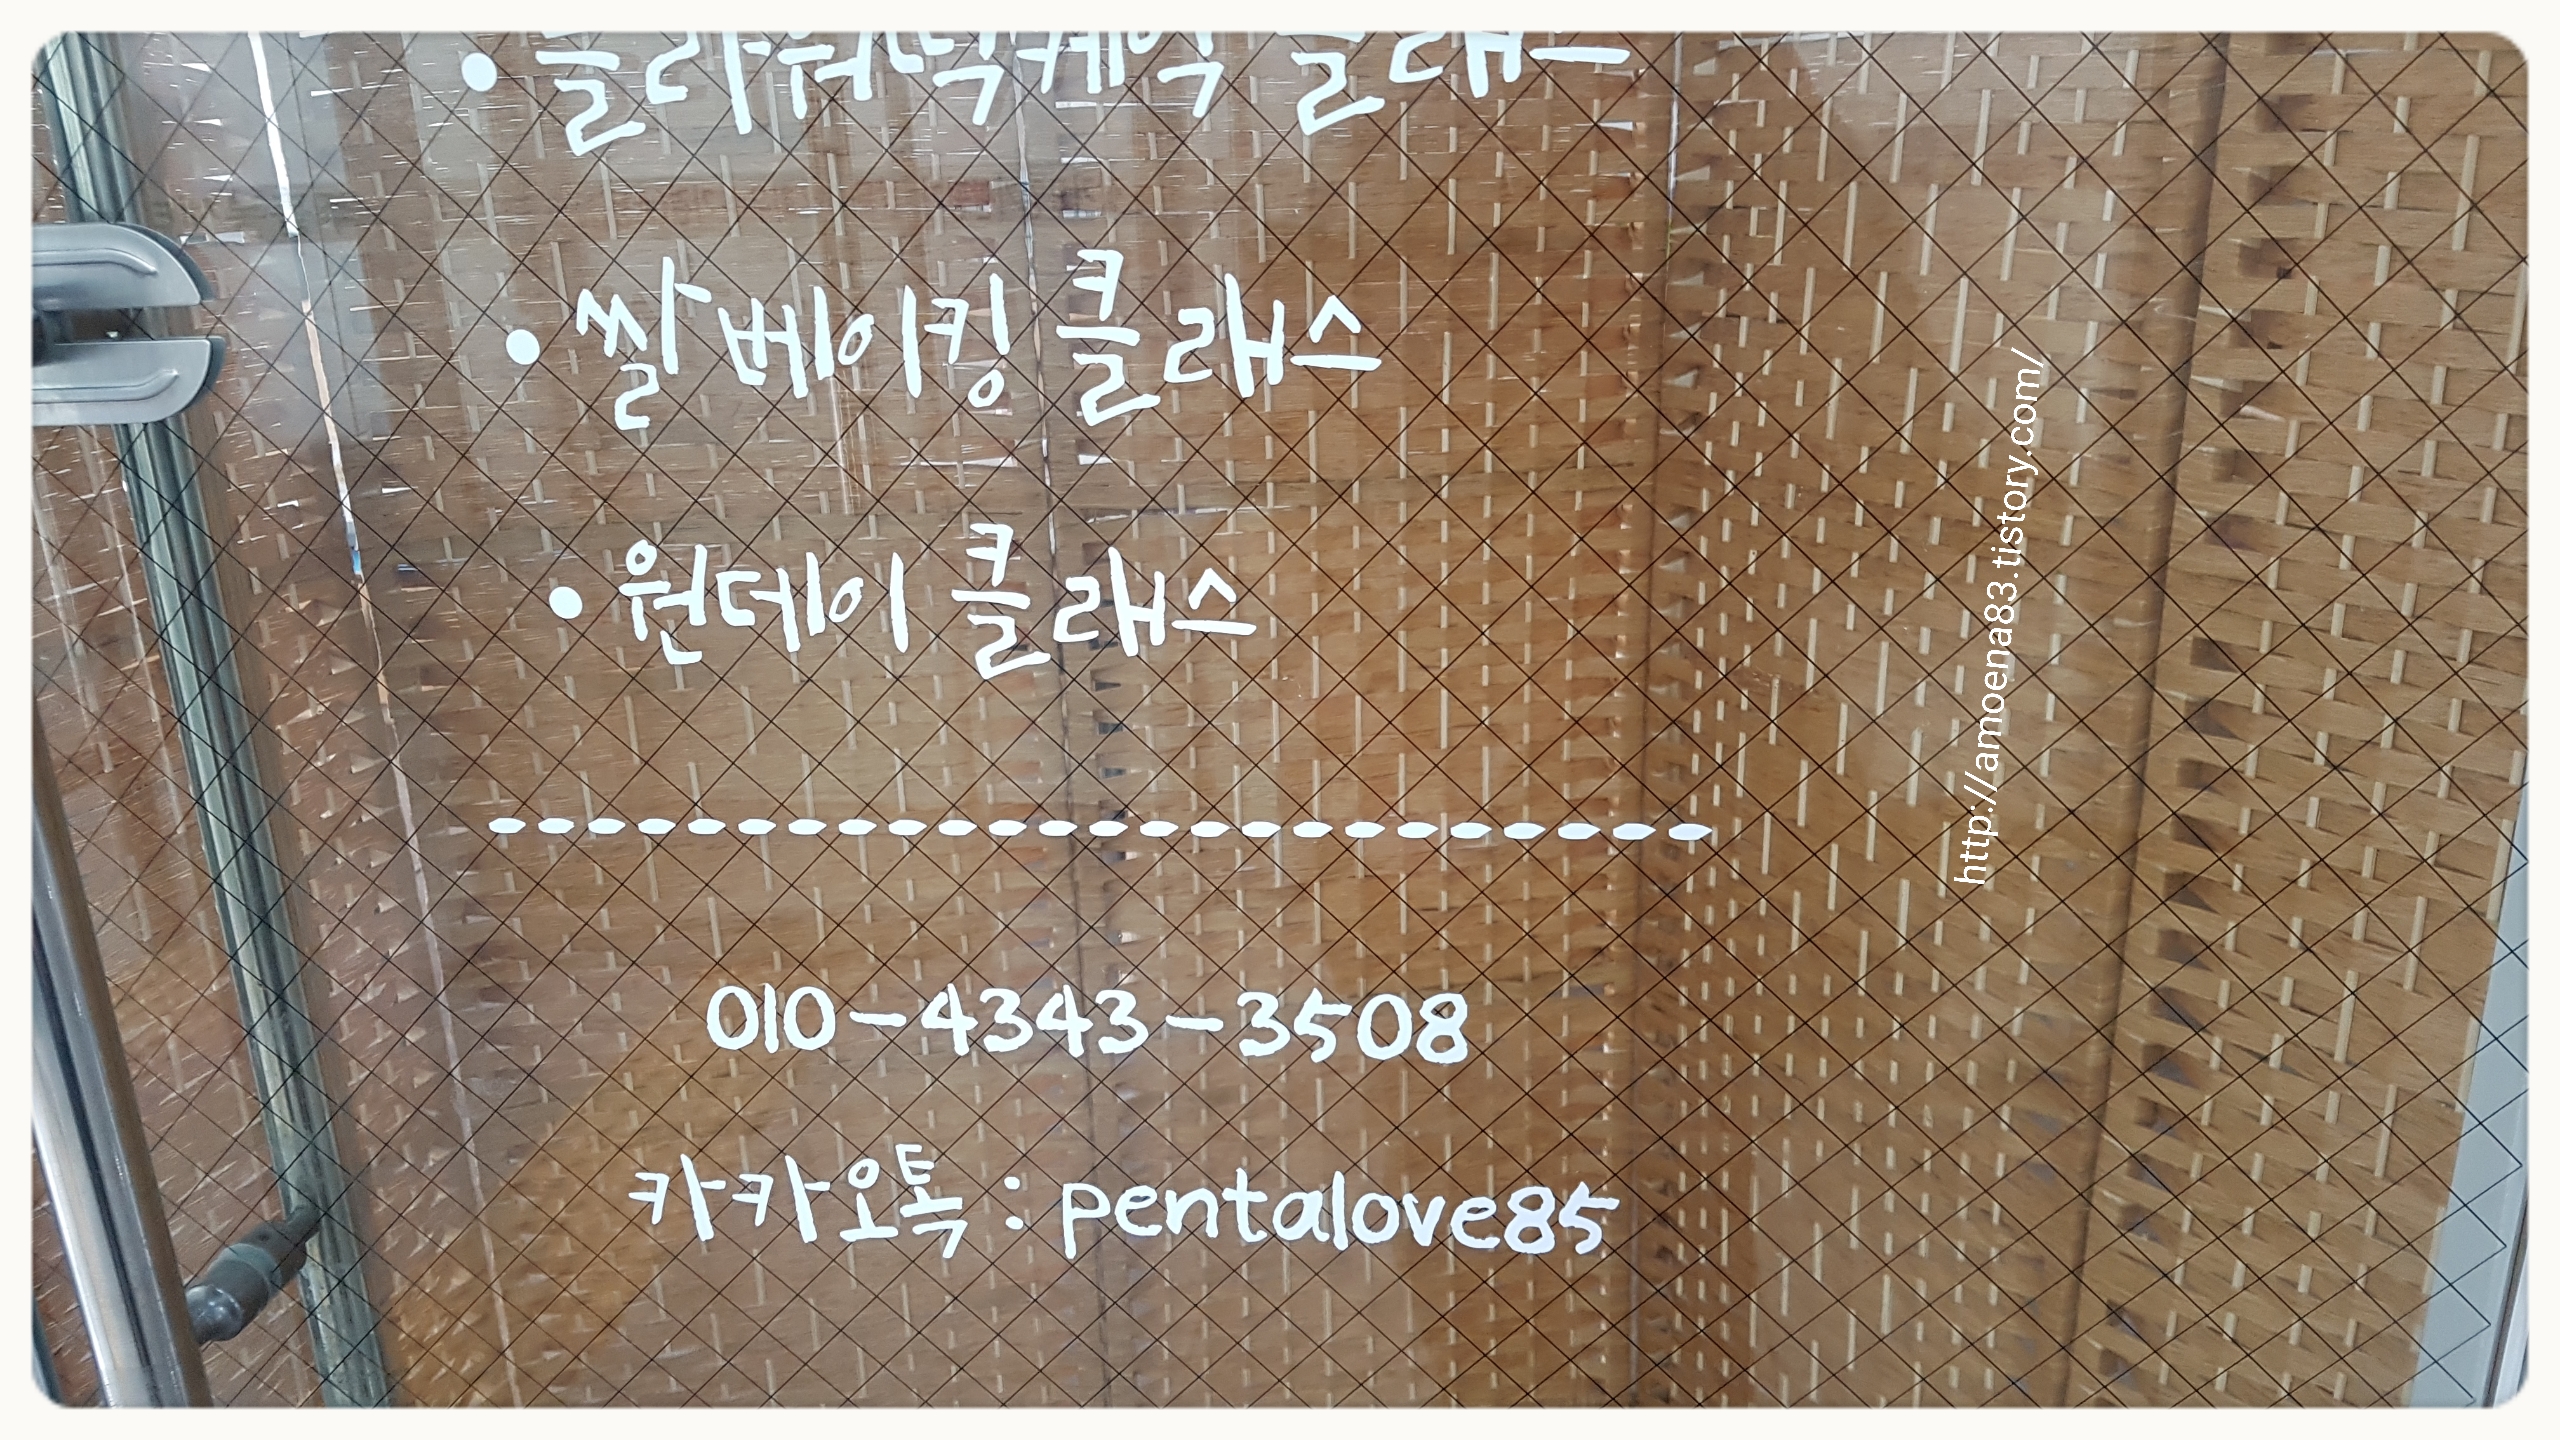 • 플라워떡케익 클래스
• 쌀베이킹 클래스
• 원데이 클래스
010-4343-3508
카카오톡 : pentalove85
http://amoena83.tistory.com/